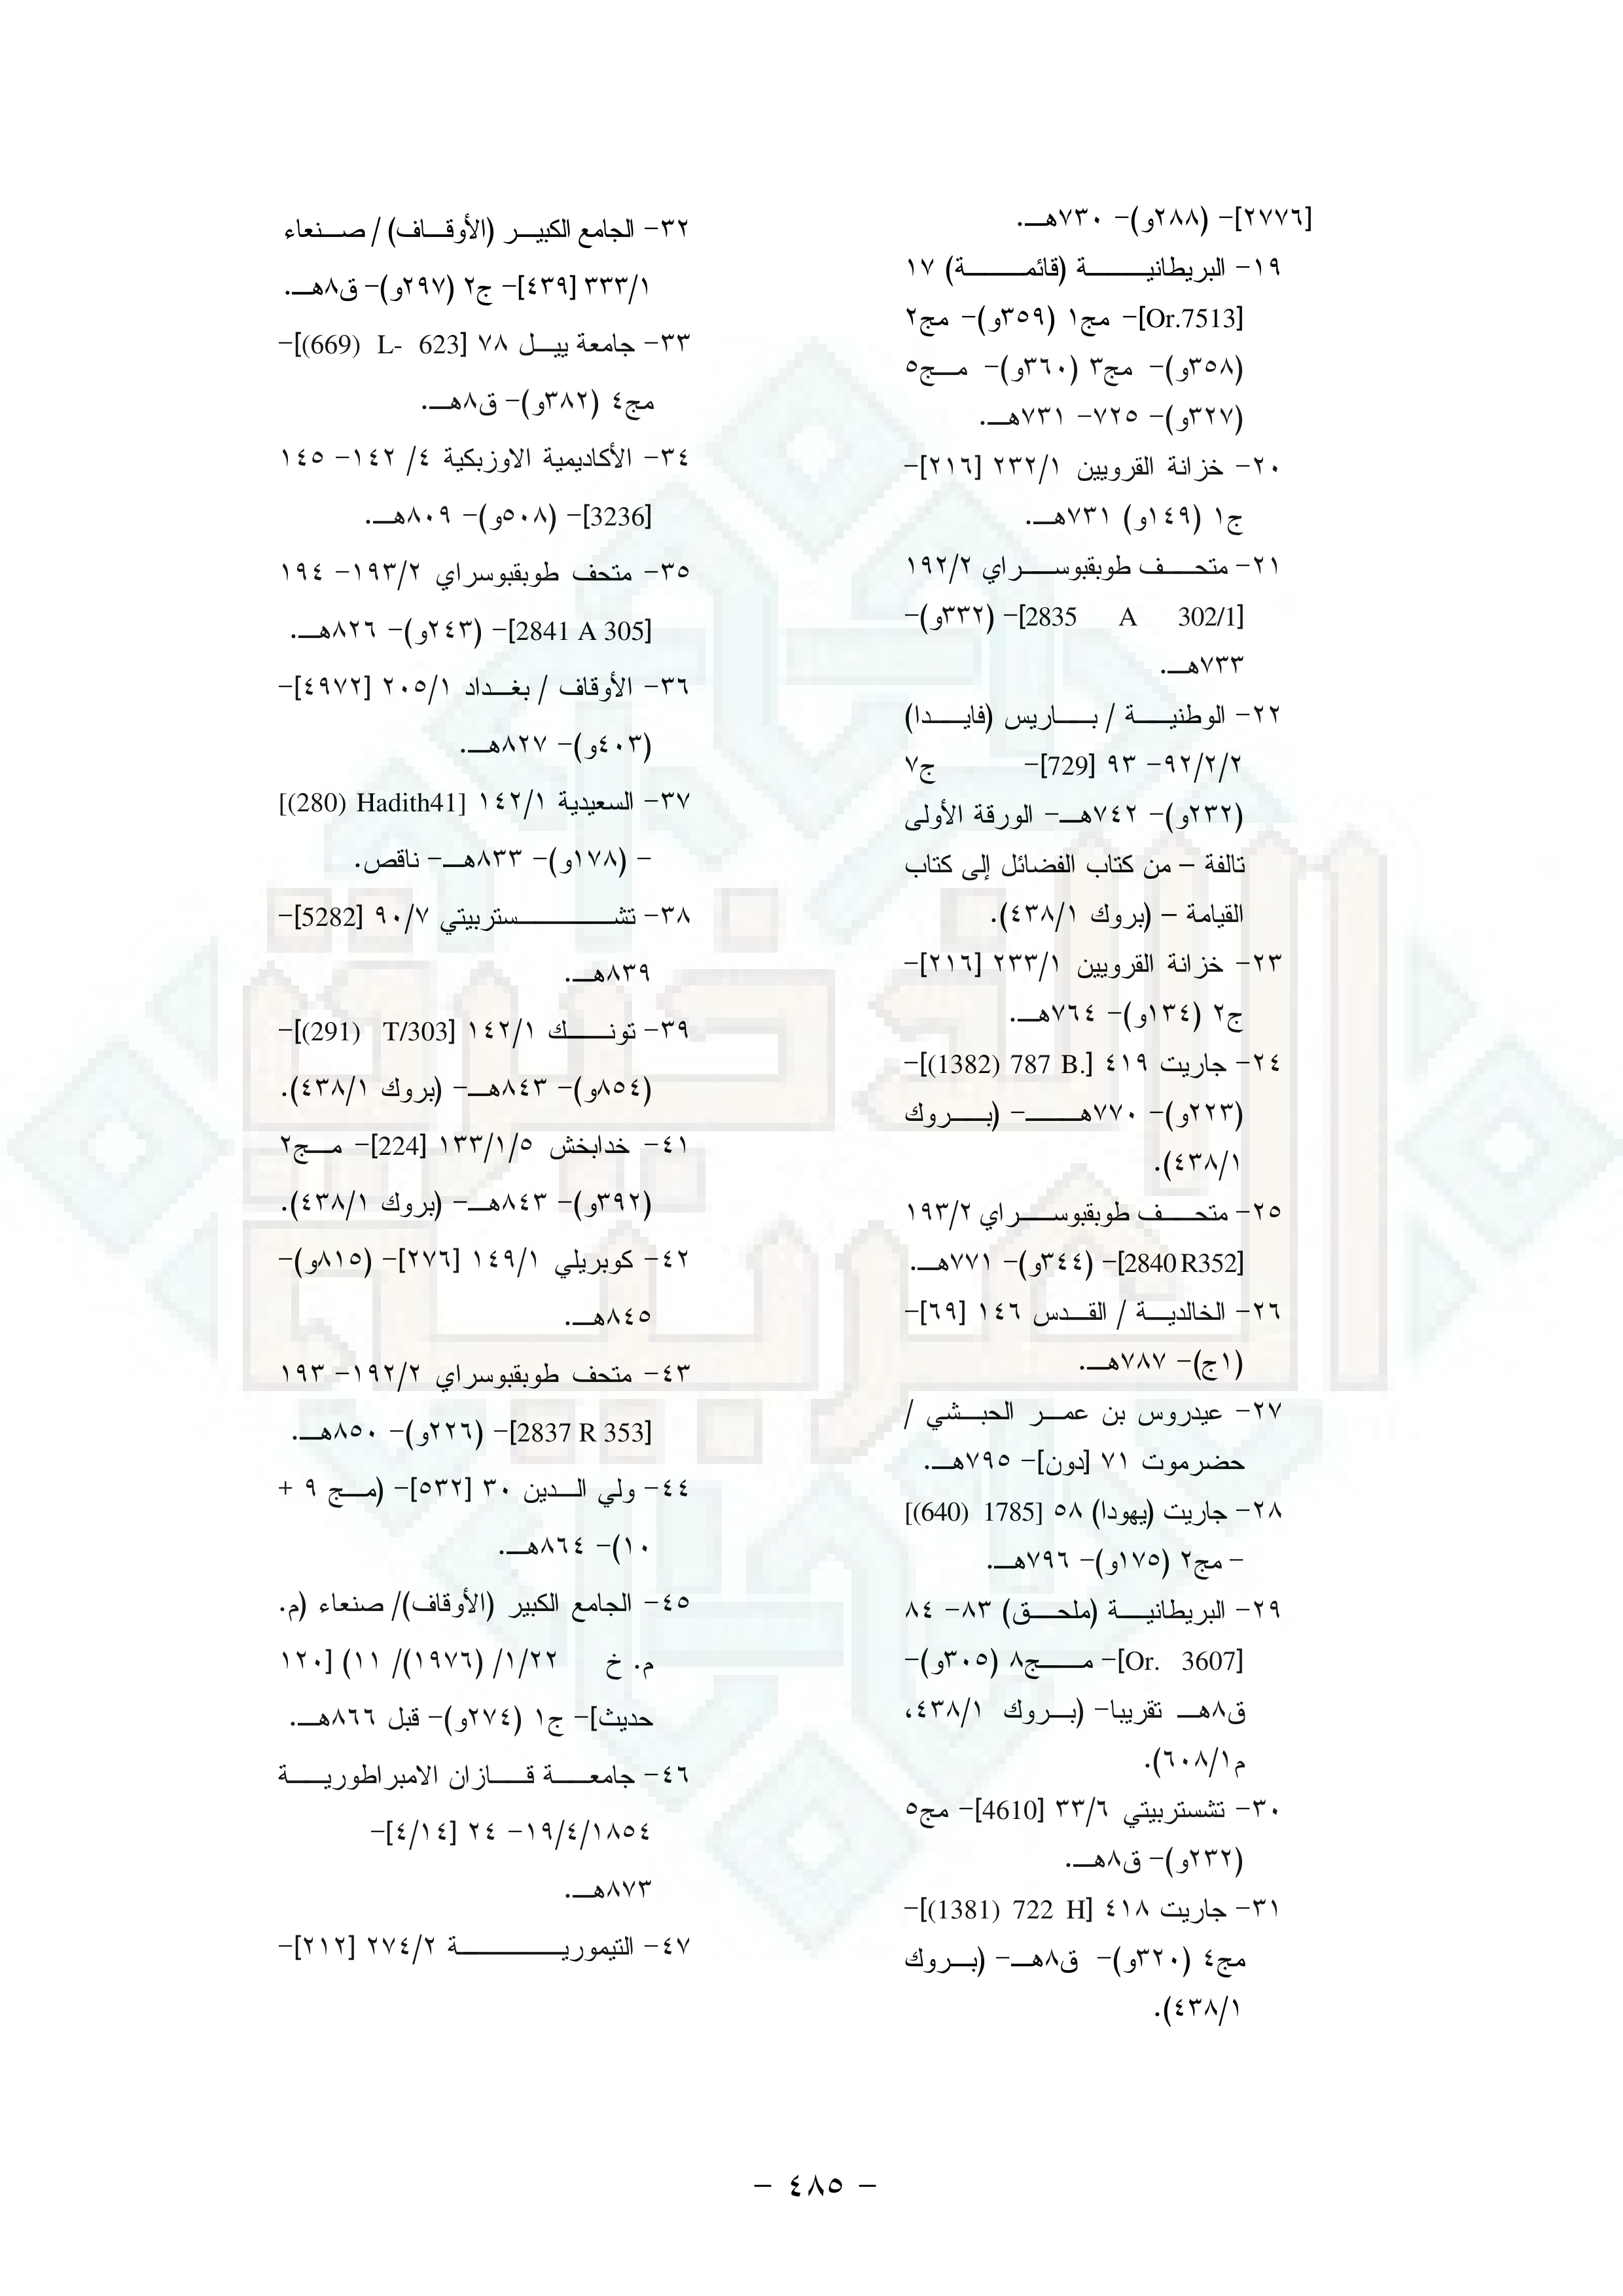 [٢٧٧٦]- (٢٨٨و)- ٧٣٠هـ.
١٩- البريطانية (قائمة) ١٧
[Or.7513]- مج١ (٣٥٩و)- مج٢
(٣٥٨و)- مج٣ (٣٦٠و)- مج٥
(٣٢٧و)- ٧٢٥- ٧٣١هـ.
٢٠- خزانة القرويين ٢٣٢/١ [٢١٦]-
ج١ (١٤٩و) ٧٣١هـ.
٢١- متحف طوبقبوسراي ١٩٢/٢
[2835 A 302/1]- (٣٣٢و)-
٧٣٣هـ.
٢٢- الوطنية / باريس (فايدا)
٩٢/٢/٢- ٩٣ [729]- ج٧
(٢٣٢و)- ٧٤٢هـ- الورقة الأولى
تالفة – من كتاب الفضائل إلى كتاب
القيامة – (بروك ٤٣٨/١).
٢٣- خزانة القرويين ٢٣٣/١ [٢١٦]-
ج٢ (١٣٤و)- ٧٦٤هـ.
٢٤- جاريت ٤١٩ [.787 B (1382)]-
(٢٢٣و)- ٧٧٠هـ- (بروك
٤٣٨/١).
٢٥- متحف طوبقبوسراي ١٩٣/٢
[2840 R352]- (٣٤٤و)- ٧٧١هـ.
٢٦- الخالدية / القدس ١٤٦ [٦٩]-
(١ج)- ٧٨٧هـ.
٢٧- عيدروس بن عمر الحبشي /
حضرموت ٧١ [دون]- ٧٩٥هـ.
٢٨- جاريت (يهودا) ٥٨ [1785 (640)]
- مج٢ (١٧٥و)- ٧٩٦هـ.
٢٩- البريطانية (ملحق) ٨٣- ٨٤
[Or. 3607]- مج٨ (٣٠٥و)-
ق٨هـ تقريبا- (بروك ٤٣٨/١،
م٦٠٨/١).
٣٠- تشستربيتي ٣٣/٦ [4610]- مج٥
(٢٣٢و)- ق٨هـ.
٣١- جاريت ٤١٨ [722 H (1381)]-
مج٤ (٣٢٠و)- ق٨هـ- (بروك
٤٣٨/١).
٣٢- الجامع الكبير (الأوقاف) / صنعاء
٣٣٣/١ [٤٣٩]- ج٢ (٢٩٧و)- ق٨هـ.
٣٣- جامعة ييل ٧٨ [L- 623 (669)]-
مج٤ (٣٨٢و)- ق٨هـ.
٣٤- الأكاديمية الاوزبكية ٤/ ١٤٢- ١٤٥
[3236]- (٥٠٨و)- ٨٠٩هـ.
٣٥- متحف طوبقبوسراي ١٩٣/٢- ١٩٤
[2841 A 305]- (٢٤٣و)- ٨٢٦هـ.
٣٦- الأوقاف / بغداد ٢٠٥/١ [٤٩٧٢]-
(٤٠٣و)- ٨٢٧هـ.
٣٧- السعيدية ١٤٢/١ [Hadith41 (280)]
- (١٧٨و)- ٨٣٣هـ- ناقص.
٣٨- تشستربيتي ٩٠/٧ [5282]-
٨٣٩هـ.
٣٩- تونك ١٤٢/١ [T/303 (291)]-
(٨٥٤و)- ٨٤٣هـ- (بروك ٤٣٨/١).
٤١- خدابخش ١٣٣/١/٥ [224]- مج٢
(٣٩٢و)- ٨٤٣هـ- (بروك ٤٣٨/١).
٤٢- كوبريلي ١٤٩/١ [٢٧٦]- (٨١٥و)-
٨٤٥هـ.
٤٣- متحف طوبقبوسراي ١٩٢/٢- ١٩٣
[2837 R 353]- (٢٢٦و)- ٨٥٠هـ.
٤٤- ولي الدين ٣٠ [٥٣٢]- (مج ٩ +
١٠)- ٨٦٤هـ.
٤٥- الجامع الكبير (الأوقاف)/ صنعاء (م.
م. خ ١/٢٢/ (١٩٧٦)/ ١١) [١٢٠
حديث]- ج١ (٢٧٤و)- قبل ٨٦٦هـ.
٤٦- جامعة قازان الامبراطورية
١٩/٤/١٨٥٤- ٢٤ [٤/١٤]-
٨٧٣هـ.
٤٧- التيمورية ٢٧٤/٢ [٢١٢]-
الذخيرة
العربية
- ٤٨٥ -